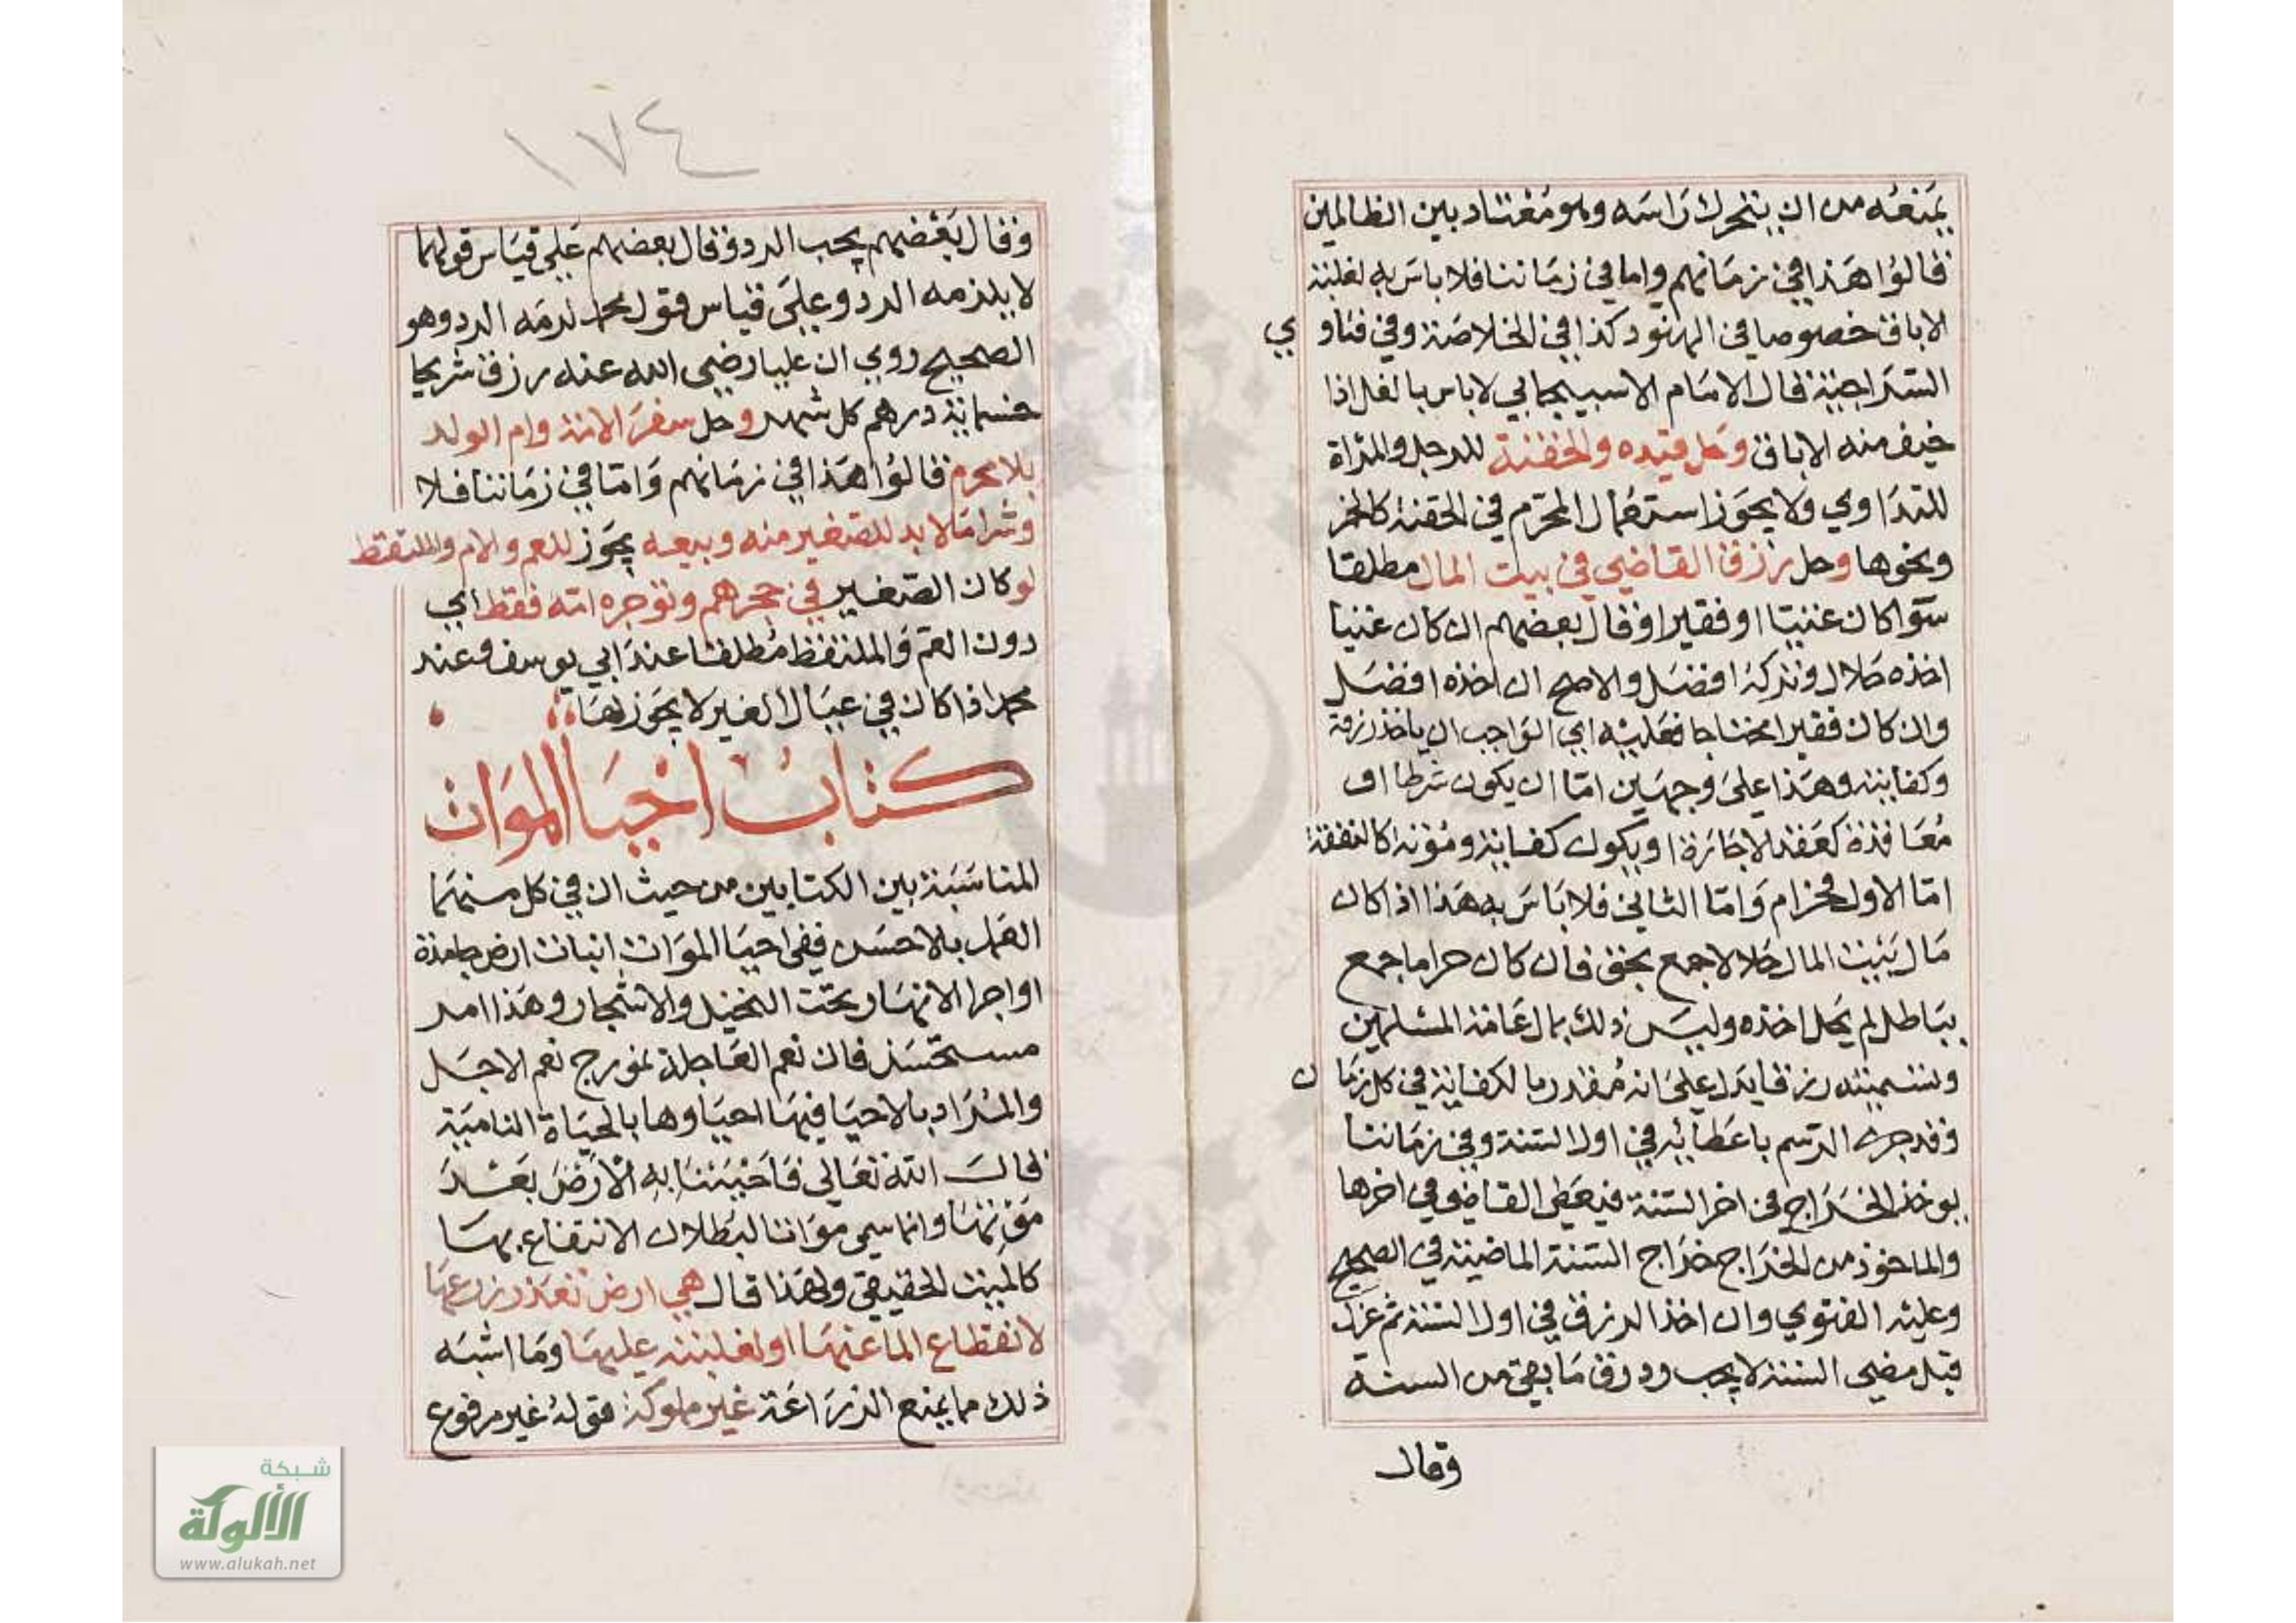 يمنعه من ان يتحرك راسه وهو معتاد بين الظالمين
فالوا هذا في زمانهم واما في زماننا فلا باس به لغلبة
الاباق خصوصا في الهنود كذا في الخلاصة وفي فتاوي
السراجية قال الامام الاسبيجابي لا باس بالغل اذا
خيف منه الاباق وحل قيده والحقنة للرجل والمراة
للتداوي ولا يجوز استعمال المحرم في الحقنة كالخمر
ونحوها وحل رزق القاضي في بيت المال مطلقا
سوا كان غنيا او فقيرا وقال بعضهم ان كان غنيا
اخذه حلال وتركه افضل والاصح ان اخذه افضل
وان كان فقيرا محتاجا فعليه اي الواجب ان ياخذ رزقه
وكفايته وهذا على وجهين اما ان يكون شرطا او
معاقدة كعقد الاجارة او يكون كفاية ومؤنة كالنفقة
اما الاول فحرام واما الثاني فلا باس به هذا اذا كان
مال بيت المال حلالا جمع بحق فان كان حراما جمع
بباطل لم يحل اخذه وليس ذلك بمال عامة المسلمين
وتسميته رزقا يدل على انه مقدر بالكفاية في كل زمان
وقد جرى الرسم باعطائه في اول السنة وفي زماننا
يوخذ الخراج في اخر السنة فيعطى القاضي في اخرها
والماخوذ من الخراج خراج السنة الماضية في الصحيح
وعليه الفتوي وان اخذ الرزق في اول السنة ثم عزل
قبل مضي السنة لا يجب رد رزق ما بقي من السنة
وقال
١٧٤
وقال بعضهم يجب الرد وقال بعضهم على قياس قولهما
لا يلزمه الرد وعلى قياس قول محمد لزمه الرد وهو
الصحيح روي ان عليا رضي الله عنه رزق شريحا
خسماية درهم كل شهر وحل سفر الامة وام الولد
بلا محرم فالوا هذا في زمانهم واما في زماننا فلا
وشرا ما لا بد للصغير منه وبيعه يجوز للعم والام والملتقط
لو كان الصغير في حجرهم وتوجره امه فقط اي
دون العم والملتقط مطلقا عند ابي يوسف وعند
محمد اذا كان في عيال الغير لا يجوز لها
كتاب احيا الموات
المناسبة بين الكتابين من حيث ان في كل منهما
العمل بالاحسن ففي احيا الموات انبات ارض جامدة
او اجرا الانهار تحت النخيل والاشجار وهذا امر
مستحسن فان نعم العاجلة نموزج نعم الاجل
والمراد بالاحيا فيها احياوها بالحياة النامية
قال الله تعالى فاحيينا به الارض بعد
موتها وانما سمي مواتا لبطلان الانتفاع بها
كالميت الحقيقي ولهذا قال هي ارض تعذر زرعها
لانقطاع الما عنها او لغلبته عليها وما اشبه
ذلك مما يمنع الزراعة غير مملوكة قوله غير مرفوع
شبكة
الألوكة
www.alukah.net